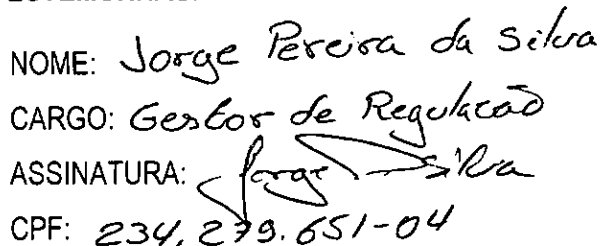 NOME: Jorge Pereira da Silva
CARGO: Gestor de Regulacão
ASSINATURA: Jorge Silva
CPF: 234.279.651-04